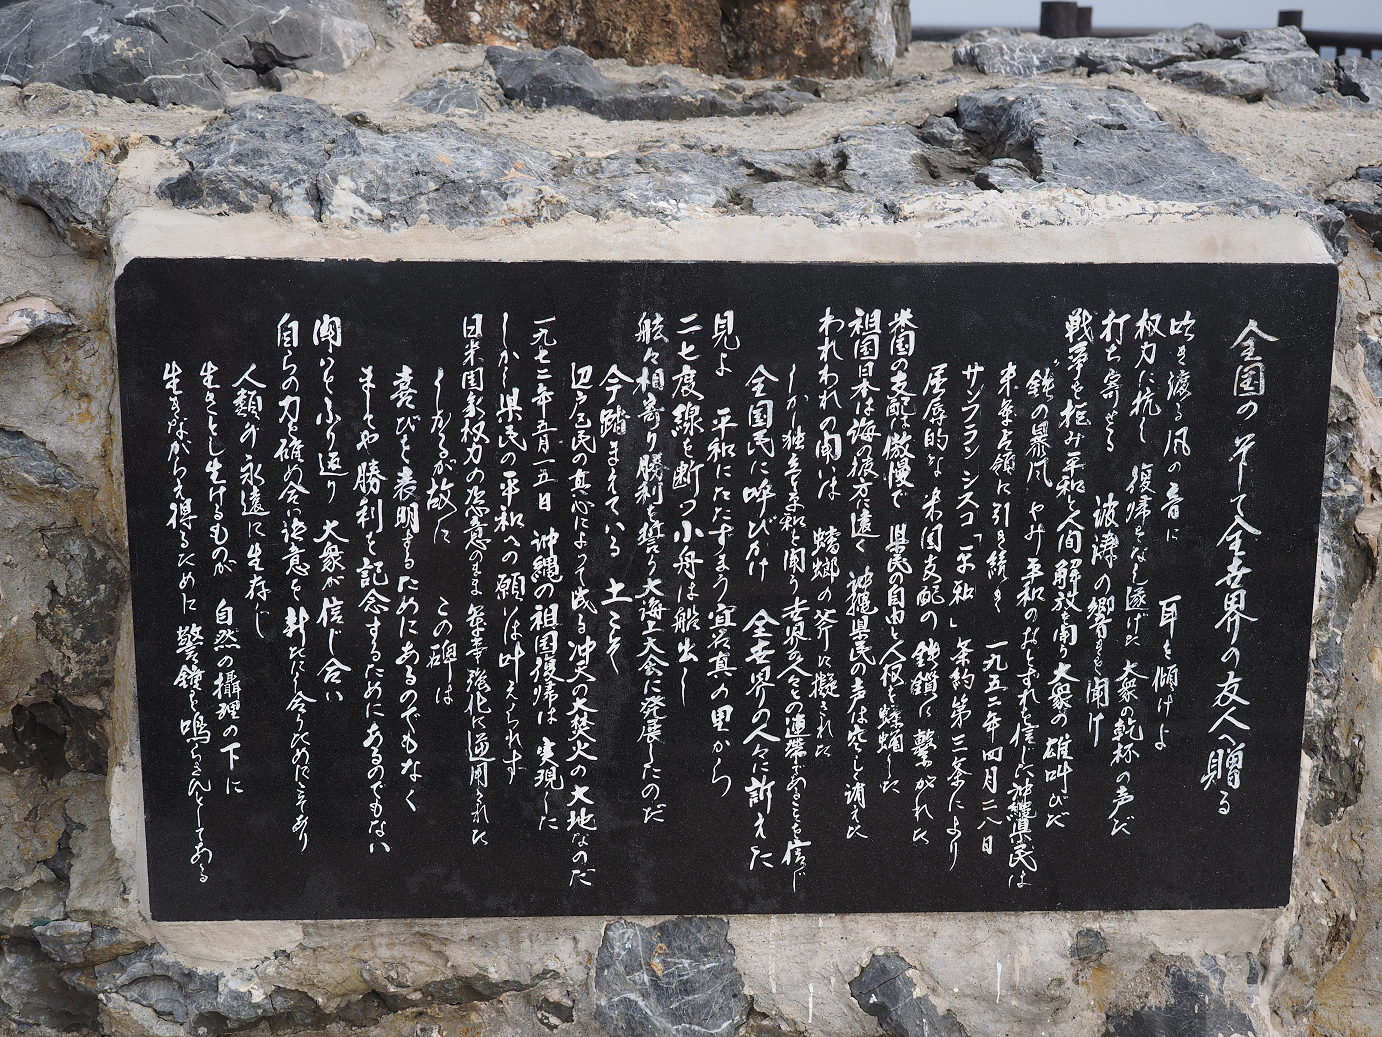 全国のそして全世界の友人へ贈る
吹き渡る風の音に 耳を傾けよ
权力に抗し 復帰をなし遂げた 大衆の乾杯の声だ
打ち寄せる 波濤の響きを聞け
戦争を拒み平和と人間解放を闘う大衆の雄叫びだ
“鉄の暴風”やみ平和のおとずれを信じた沖縄県民は
米軍占領に引き続き 一九五二年四月二八日
サンフランシスコ「平和」条約第三条により
屈辱的な米国支配の鉄鎖に繋がれた
米国の支配は傲慢で 県民の自由と人权を蹂躙した
祖国日本は海の彼方に遠く 沖縄県民の声は空しく消えた
われわれの闘いは 蟷螂の斧に擬された
しかし独立と平和を闘う世界の人々との連帯があることを信じ
全国民に呼びかけ 全世界の人々に訴えた
見よ 平和にたたずまう宜名真の里から
二七度線を断つ小舟は船出し
舷々相寄り勝利を誓う大海上大会に発展したのだ
今踏まえている 土こそ
辺戸区民の真心によって成る沖天の大焚火の大地なのだ
一九七二年五月一五日 沖縄の祖国復帰は実現した
しかし県民の平和への願いは叶えられず
日米国家权力の恣意のまま軍事強化に逆用された
しかるが故に この碑は
喜びを表明するためにあるのでもなく
ましてや勝利を記念するためにあるのでもない
闘いをふり返り 大衆が信じ合い
自らの力を確め合い決意を新たにし合うためにこそあり
人類が 永遠に生存し
生きとし生けるものが 自然の攝理の下に
生きながらえ得るために 警鐘を鳴らさんとしてある